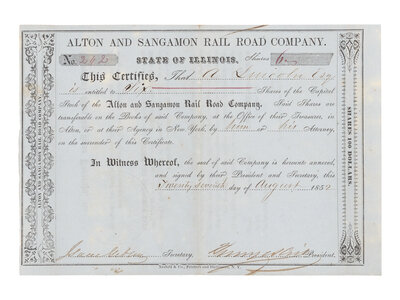 ALTON AND SANGAMON RAIL ROAD COMPANY.
No. 242 STATE OF ILLINOIS. Shares 6
This Certifies, That A Lincoln Esq
is entitled to Six Shares of the Capital
Stock of the Alton and Sangamon Rail Road Company. Said Shares are
transferable on the Books of said Company, at the Office of their Treasurer, in
Alton, or at their Agency in New York, by him or his Attorney,
on the surrender of this Certificate.
In Witness Whereof, the seal of said Company is hereunto annexed,
and signed by their President and Secretary, this
Twenty seventh day of August 1852
Secretary, President.
ALTON AND SANGAMON RAIL ROAD COMPANY
SHARES 100 DOLLARS